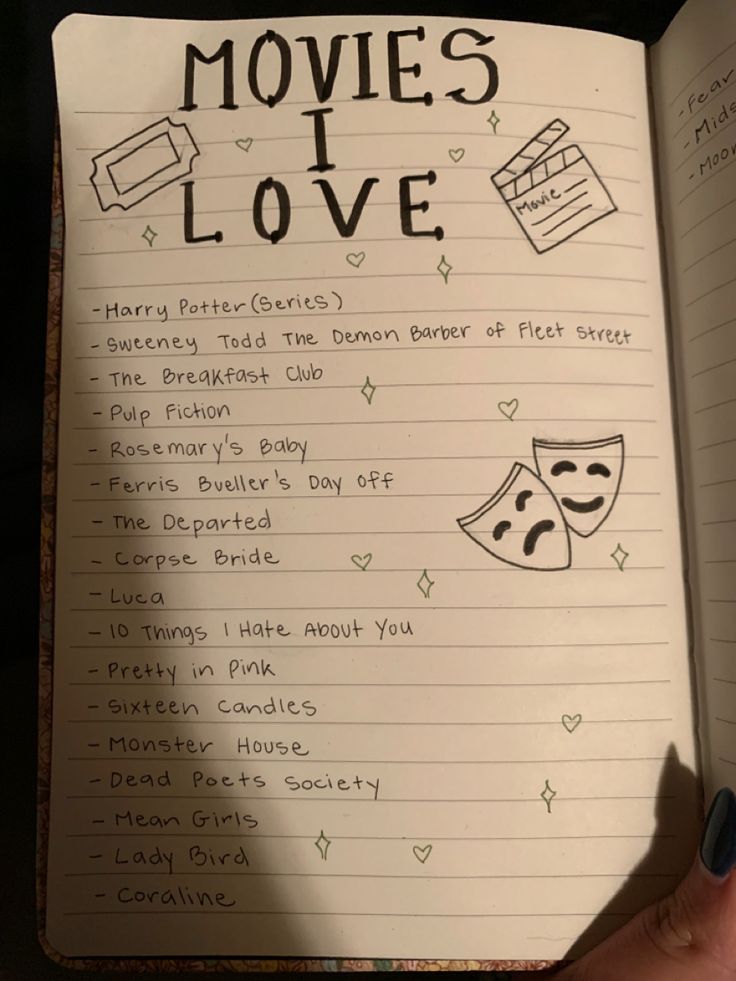 MOVIES
I
LOVE
Movie
- Harry Potter (Series)
- Sweeney Todd The Demon Barber of Fleet Street
- The Breakfast Club
- Pulp Fiction
- Rosemary's Baby
- Ferris Bueller's Day Off
- The Departed
- Corpse Bride
- Luca
- 10 Things I Hate About You
- Pretty in Pink
- Sixteen Candles
- Monster House
- Dead Poets Society
- Mean Girls
- Lady Bird
- Coraline
- Fear
- Mids
- Moon